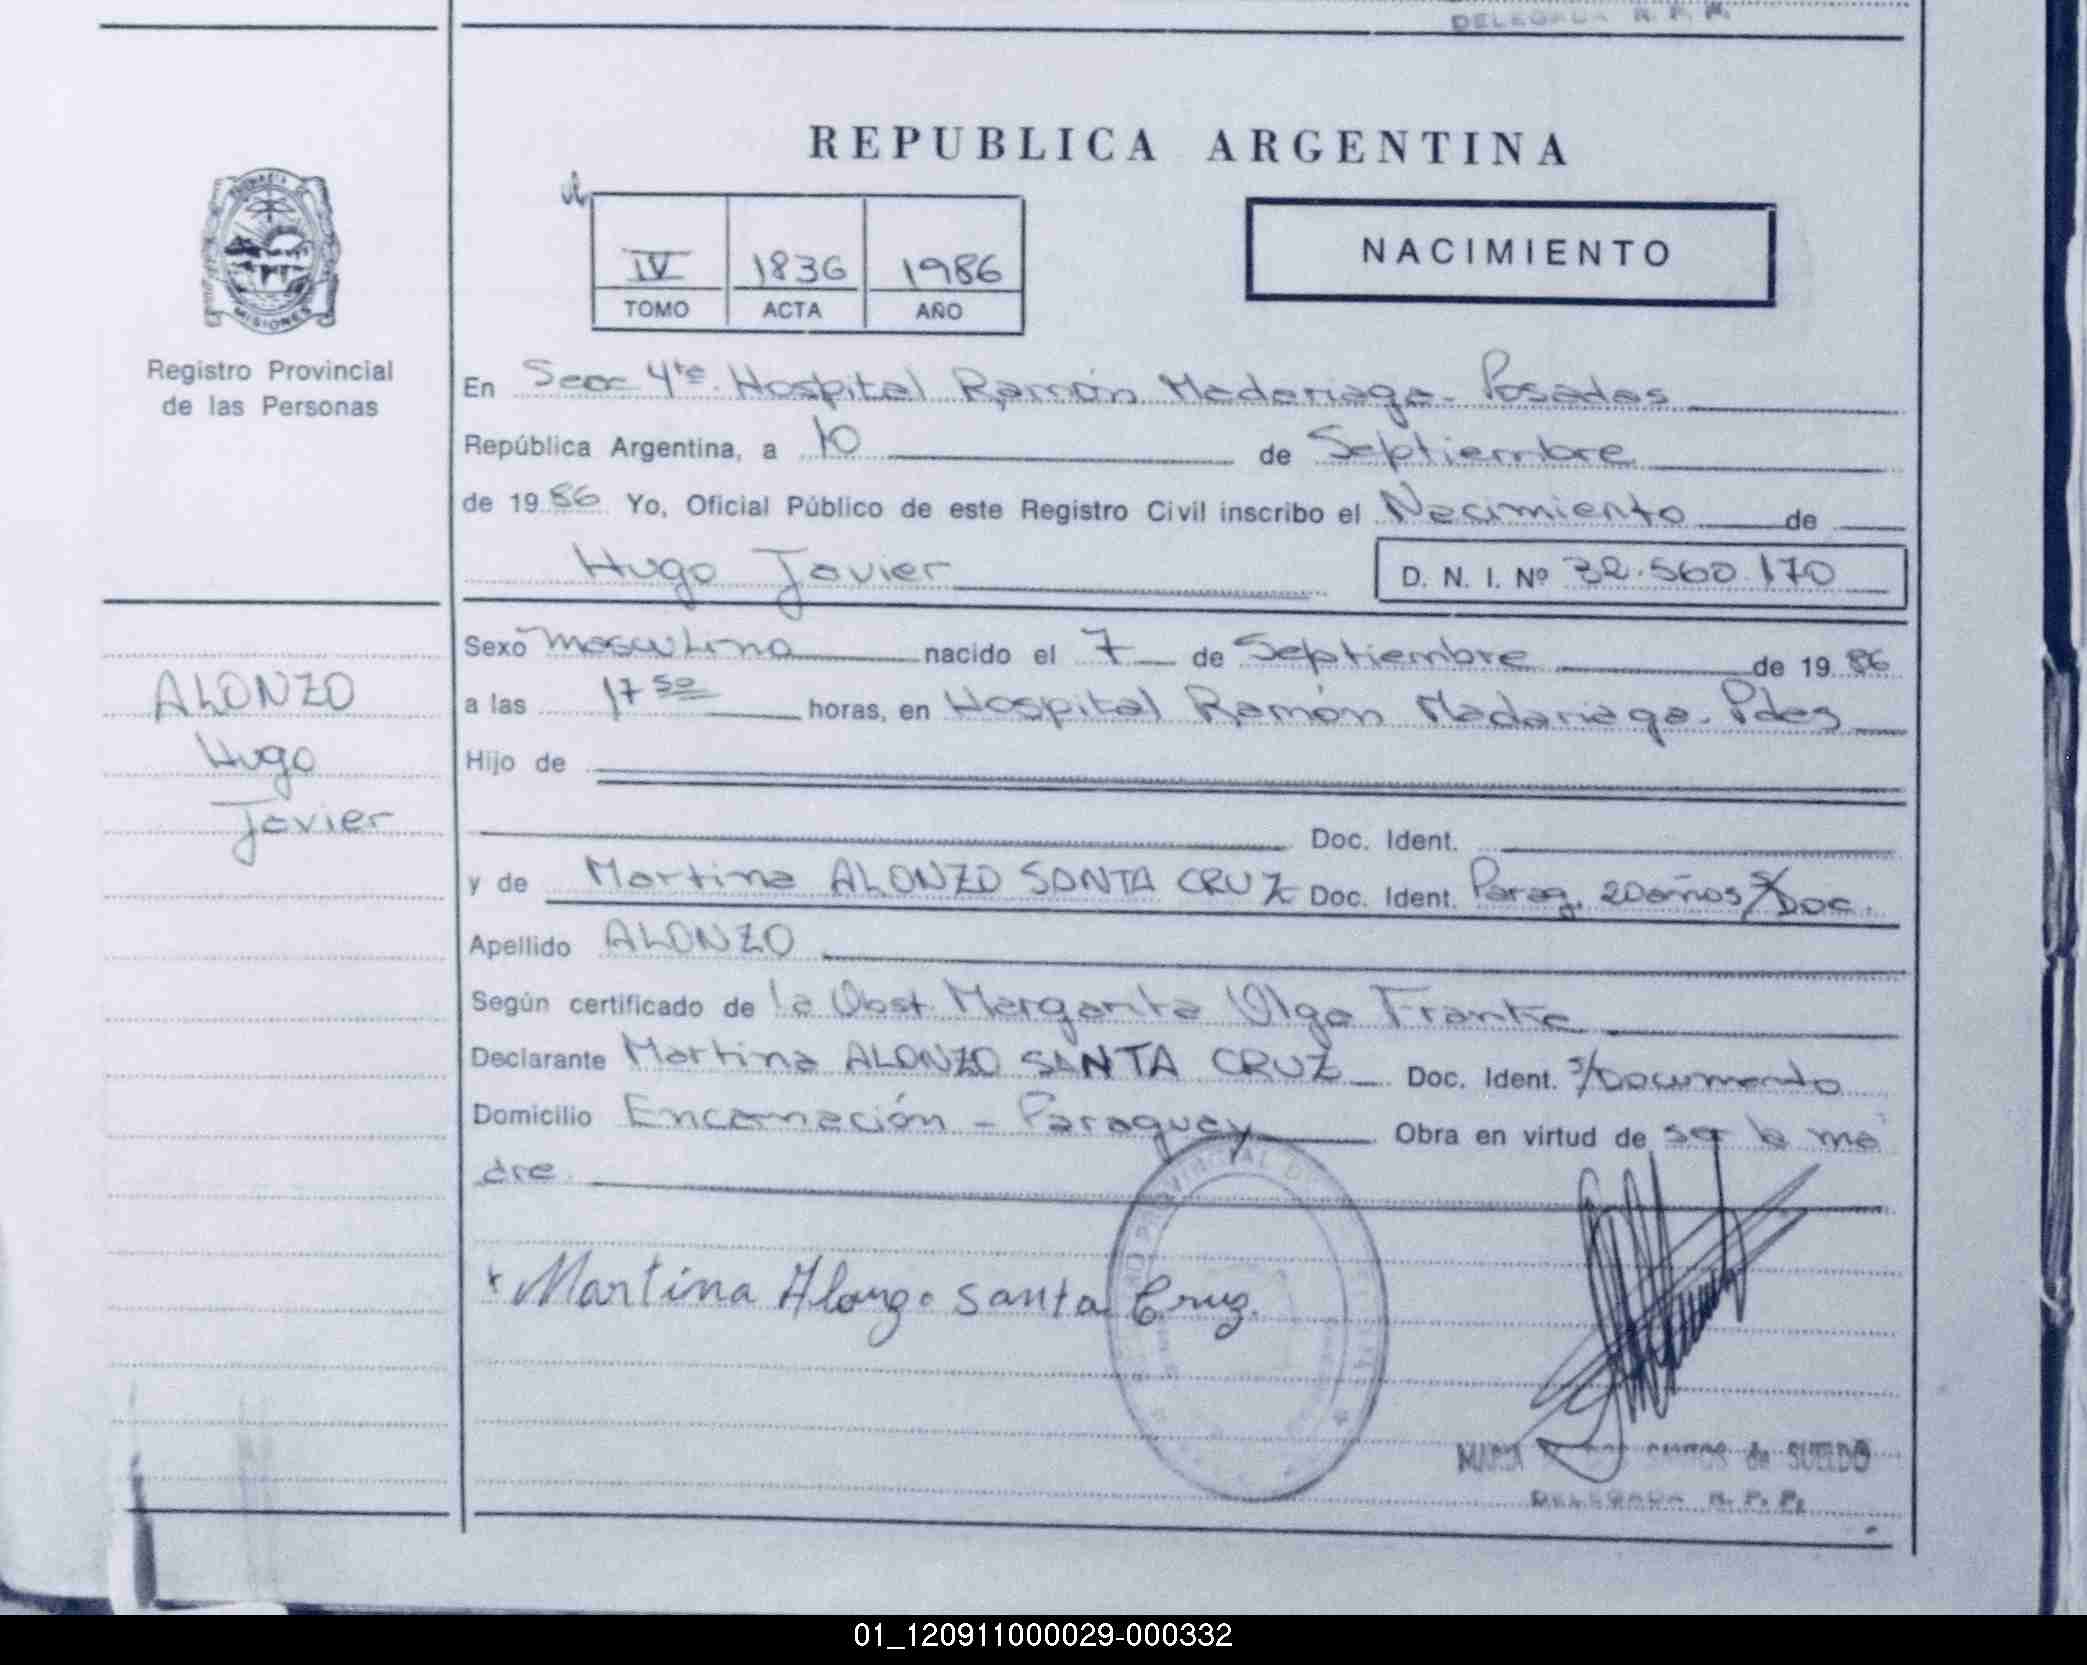 DELEGADA R. P. P.
REPUBLICA ARGENTINA
IV 1836 1986
TOMO ACTA AÑO
NACIMIENTO
MISIONES
Registro Provincial
de las Personas
En Secc 4ta. Hospital Ramón Madariaga - Posadas
República Argentina, a 10 de Septiembre
de 1986 Yo, Oficial Público de este Registro Civil inscribo el Nacimiento de
Hugo Javier D. N. I. Nº 32.560.170
Sexo masculino nacido el 7 de Septiembre de 1986
ALONZO
Hugo
Javier
a las 17 50 horas, en Hospital Ramón Madariaga - Pdas
Hijo de
Doc. Ident.
y de Martina ALONZO SANTA CRUZ Doc. Ident. Parag. 20 años s/Doc.
Apellido ALONZO
Según certificado de la Obst. Margarita Olga Franke
Declarante Martina ALONZO SANTA CRUZ Doc. Ident. s/Documento
Domicilio Encarnación - Paraguay Obra en virtud de ser la ma
dre
Martina Alonzo Santa Cruz.
PROVINCIAL DE
MARIA SANTOS de SUELDO
DELEGADA R. P. P.
01_120911000029-000332